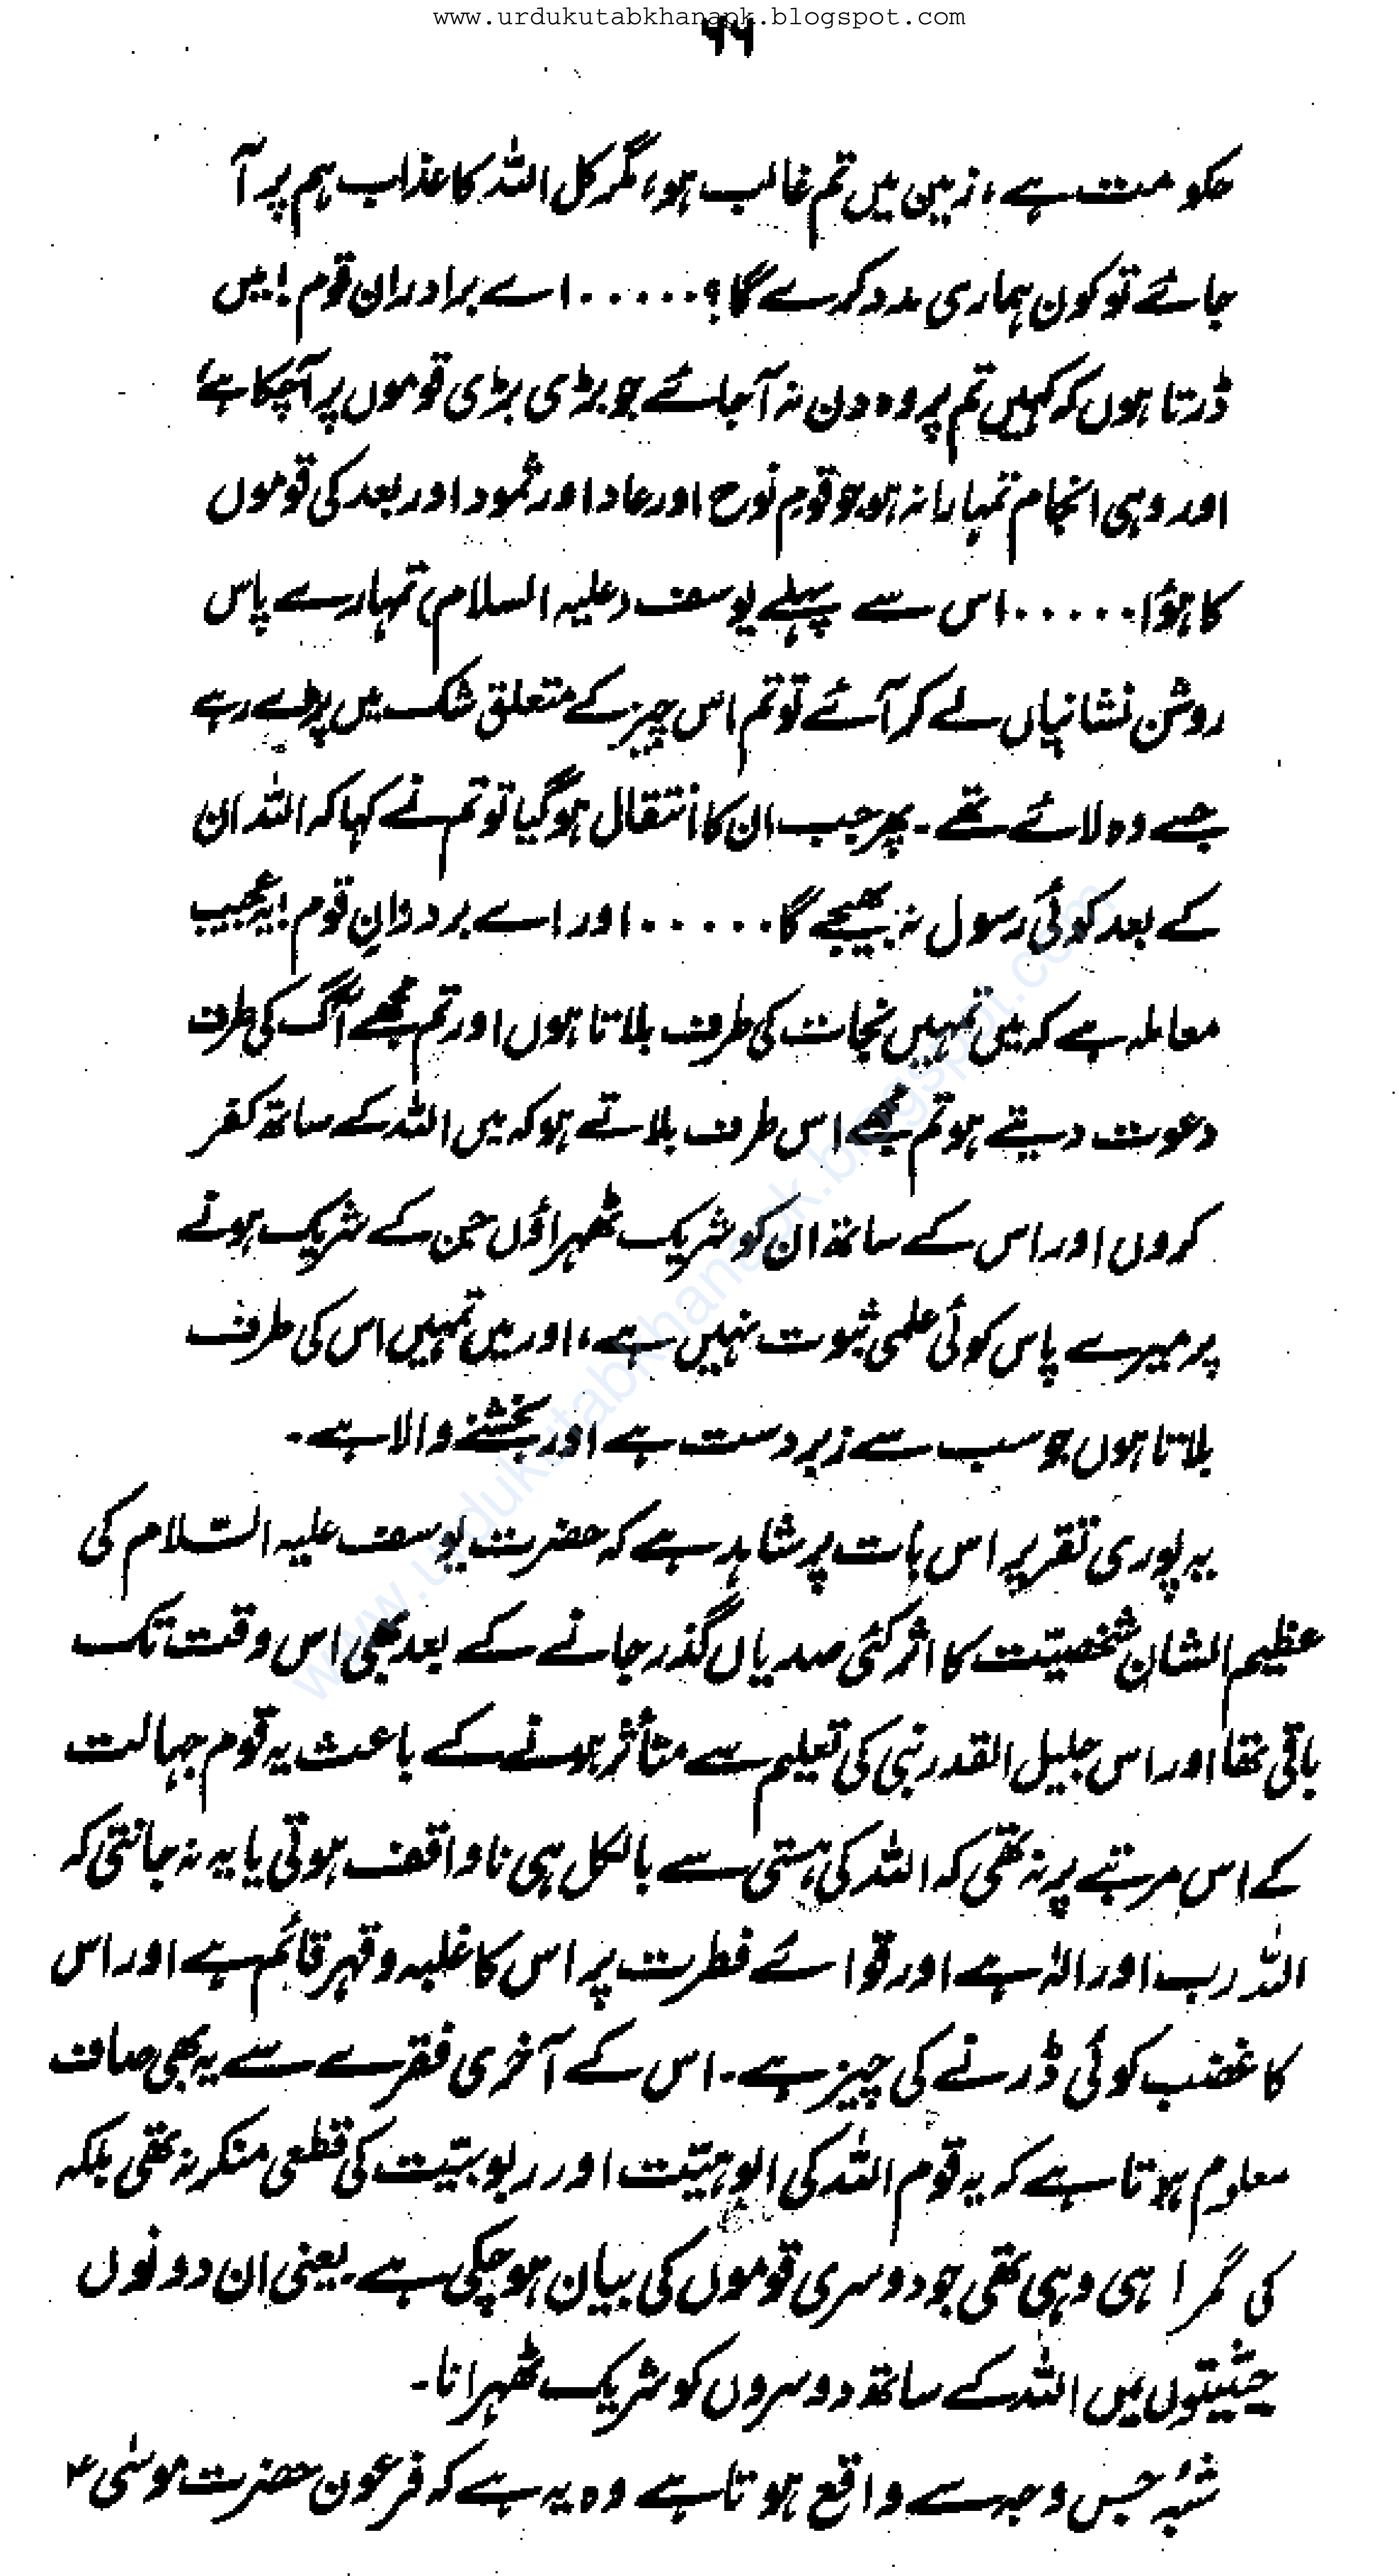 www.urdukutabkhanapk.blogspot.com
۶۶
حکومت ہے، زمین میں تم غالب ہو، مگر کل اللہ کا عذاب ہم پر آ
جائے تو کون ہماری مدد کرے گا؟ ..... اے برادران قوم! میں
ڈرتا ہوں کہ کہیں تم پر وہ دن نہ آجائے جو بڑی بڑی قوموں پر آچکا ہے،
اور وہی انجام تمہارا نہ ہو جو قومِ نوح اور عاد اور ثمود اور بعد کی قوموں
کا ہؤا ..... اس سے پہلے یوسف (علیہ السلام) تمہارے پاس
روشن نشانیاں لے کر آئے تو تم اس چیز کے متعلق شک میں پڑے رہے
جسے وہ لائے تھے۔ پھر جب ان کا انتقال ہوگیا تو تم نے کہا کہ اللہ ان
کے بعد کوئی رسول نہ بھیجے گا ..... اور اے بردرانِ قوم! یہ عجیب
معاملہ ہے کہ میں تمہیں نجات کی طرف بلاتا ہوں اور تم مجھے آگ کی طرف
دعوت دیتے ہو تم مجھے اس طرف بلاتے ہو کہ میں اللہ کے ساتھ کفر
کروں اور اس کے ساتھ ان کو شریک ٹھہراؤں جن کے شریک ہونے
پر میرے پاس کوئی علمی ثبوت نہیں ہے، اور میں تمہیں اس کی طرف
بلاتا ہوں جو سب سے زبردست ہے اور بخشنے والا ہے۔
یہ پوری تقریر اس بات پر شاہد ہے کہ حضرت یوسف علیہ السّلام کی
عظیم الشان شخصیّت کا اثر کئی صدیاں گذر جانے کے بعد بھی اس وقت تک
باقی تھا اور اس جلیل القدر نبی کی تعلیم سے متأثر ہونے کے باعث یہ قوم جہالت
کے اس مرتبے پر نہ تھی کہ اللہ کی ہستی سے بالکل ہی ناواقف ہوتی یا یہ نہ جانتی کہ
اللہ رب اور الٰہ ہے اور قوائے فطرت پر اس کا غلبہ و قہر قائم ہے اور اس
کا غضب کوئی ڈرنے کی چیز ہے۔ اس کے آخری فقرے سے یہ بھی صاف
معلوم ہوتا ہے کہ یہ قوم اللہ کی الوہیّت اور ربوبیّت کی قطعی منکر نہ تھی بلکہ
کی گمراہی وہی تھی جو دوسری قوموں کی بیان ہوچکی ہے۔ یعنی ان دونوں
حیثیتوں میں اللہ کے ساتھ دوسروں کو شریک ٹھہرانا۔
شبہُ جس وجہ سے واقع ہوتا ہے وہ یہ ہے کہ فرعون حضرت موسٰیؑ